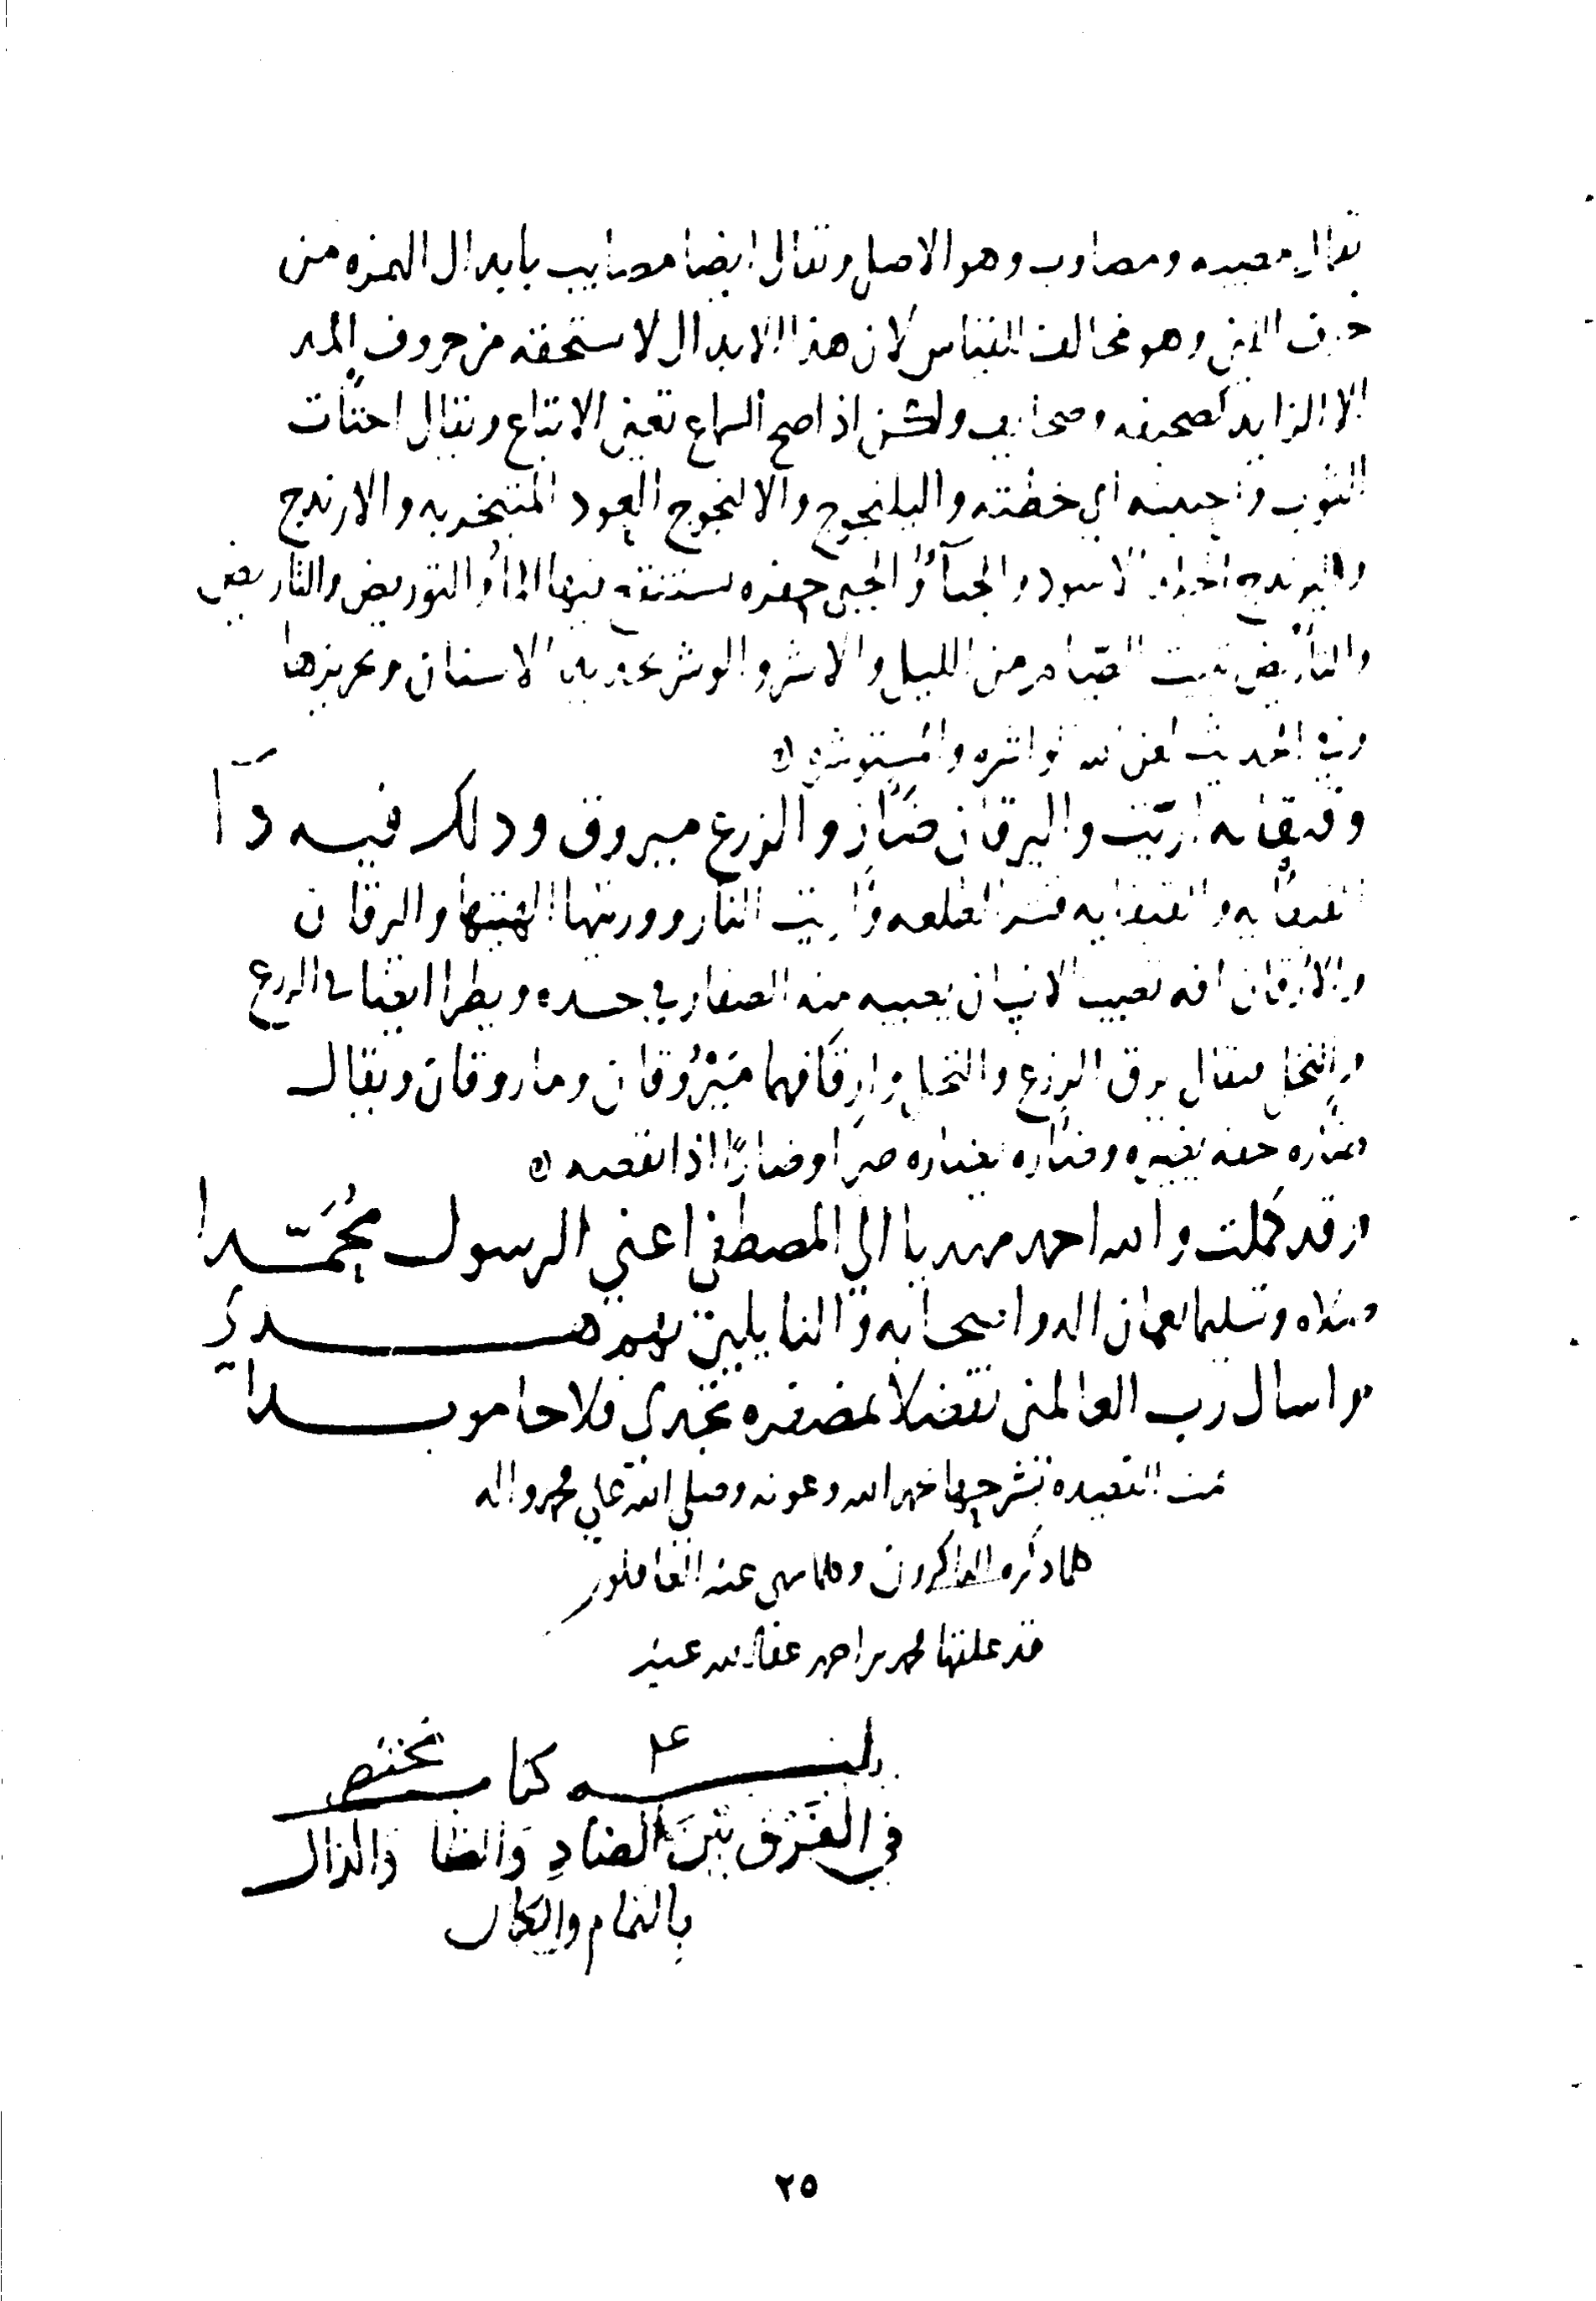 يقال مصيبه ومصاوب وهو الاصل ويقال ايضا مصايب بابدال الهمزه من
حرف اللين وهو مخالف للقياس لان هذا الابدال لا يستحقه من حروف المد
الا الزايد كصحيفه وصحايف ولكن اذا صح السماع تعين الاتباع ويقال احتات
الثوب واحتيته اي خطته واليلنجوج والالنجوج العود المتبخر به والارندج
واليرندج الجلد الاسود والجيآة والجيي حفره يستنقع فيها الماء والتوريض والتاريض
والتأريض تبييت الصيام من الليل والاشر والوشر تحديد الاسنان وتحزيزها
وفي الحديث لعن الله الواشره والمستوشره
وقيقاته ارّيت واليرقان ضئاز والزرع ميروق وذلك فيه دآ
القيقاة والقيقايه قشر الطلعه وأريت النار ووريتها الهبتها واليرقان
والأرقان افه تصيب الانسان يصيبه منه الصفار في جسده ويطرا ايضا على الزرع
والنخل فيقال يرق الزرع والنخل وارقا فهما مَيْرُوقان وماروقان ويقال
ضازه حقه يضيزه وضأزه يضأزه ضيزا وضأزا اذا نقصه
وقد كملت والله احمد مهديا الي المصطفي اعني الرسول مُحَمَّدا
صلاه وتسليما يعمان اله واصحابه والنايلين بهم هدي
واسال رب العالمين تفضلا بمغفره تجدي فلاحا موبدا
تمت القصيده بشرحها بحمد الله وعونه وصلي الله علي محمد واله
كلما ذكره الذاكرون وكلما سهى عنه الغافلون
قد علقها محمد بن احمد عفا الله عنه
يليه كتاب مختصر
في الفَرْق بَيْنَ الضادِ وَالظا وَالذال
بالتمام والكمال
٢٥